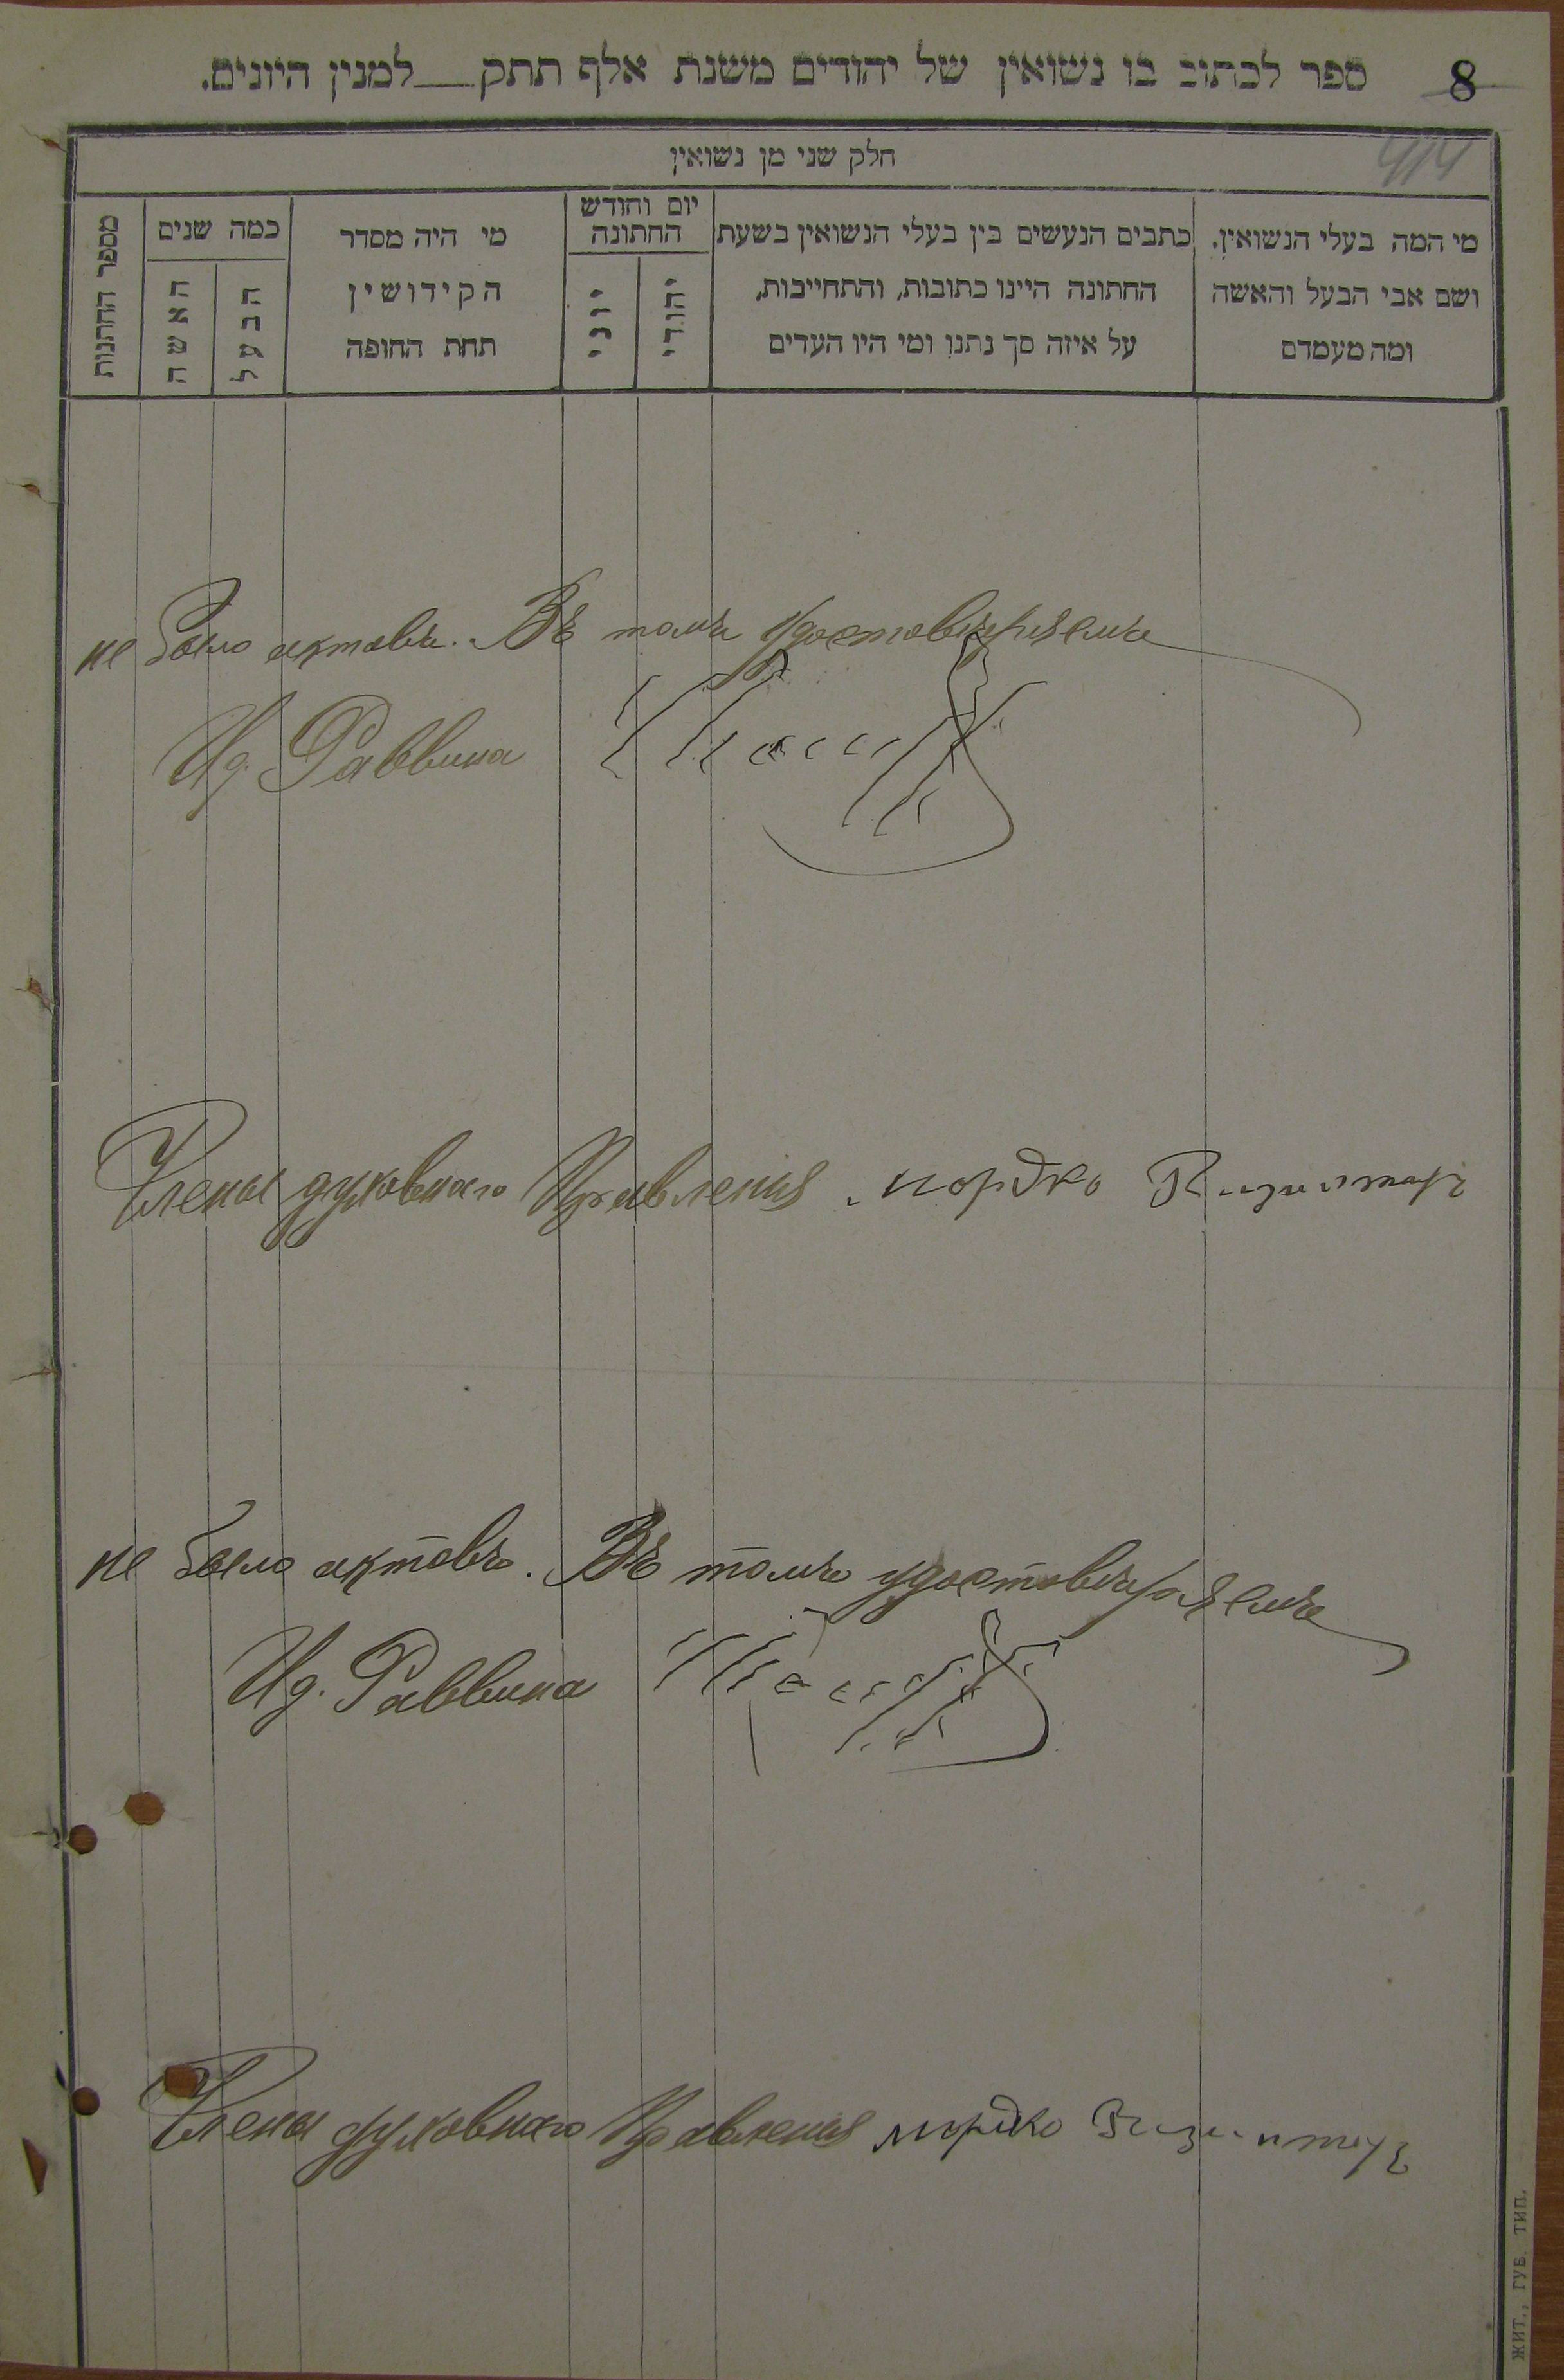 ספר לכתוב בו נשואין של יהודים משנת אלף תתק___למנין היונים. 8
414
חלק שני מן נשואין
מי המה בעלי הנשואין.
ושם אבי הבעל והאשה
ומה מעמדם
כתבים הנעשים בין בעלי הנשואין בשעת
החתונה היינו כתובות, והתחייבות,
על איזה סך נתנו ומי היו העדים
יום וחודש
החתונה
יהודי
יוני
מי היה מסדר
הקידושין
תחת החופה
כמה שנים
הבעל
האשה
מספר החתנות
не было актовъ. Въ томъ удостовѣряемъ
Ид. Раввина
Члены духовнаго Правленія Мордко
не было актовъ. Въ томъ удостовѣряемъ
Ид. Раввина
Члены духовнаго Правленія Мордко
ЖИТ., ГУБ. ТИП.